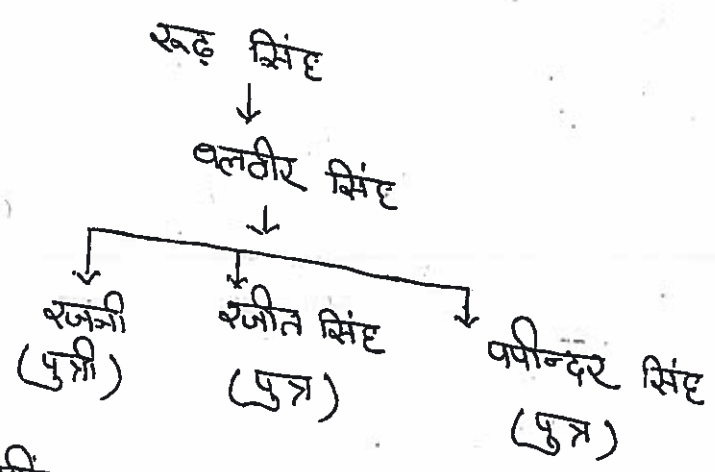 रूढ़ सिंह
बलवीर सिंह
रजनी
(पुत्री)
रजीत सिंह
(पुत्र)
पपीन्दर सिंह
(पुत्र)